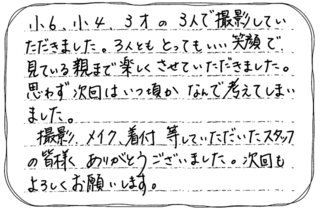 小6、小4、3才の3人で撮影してい
ただきました。3人ともとってもいい笑顔で、
見ている親まで楽しくさせていただきました。
思わず次回はいつ頃かなんて考えてしまい
ました。
撮影、メイク、着付等していただいたスタッフ
の皆様、ありがとうございました。次回も
よろしくお願いします。